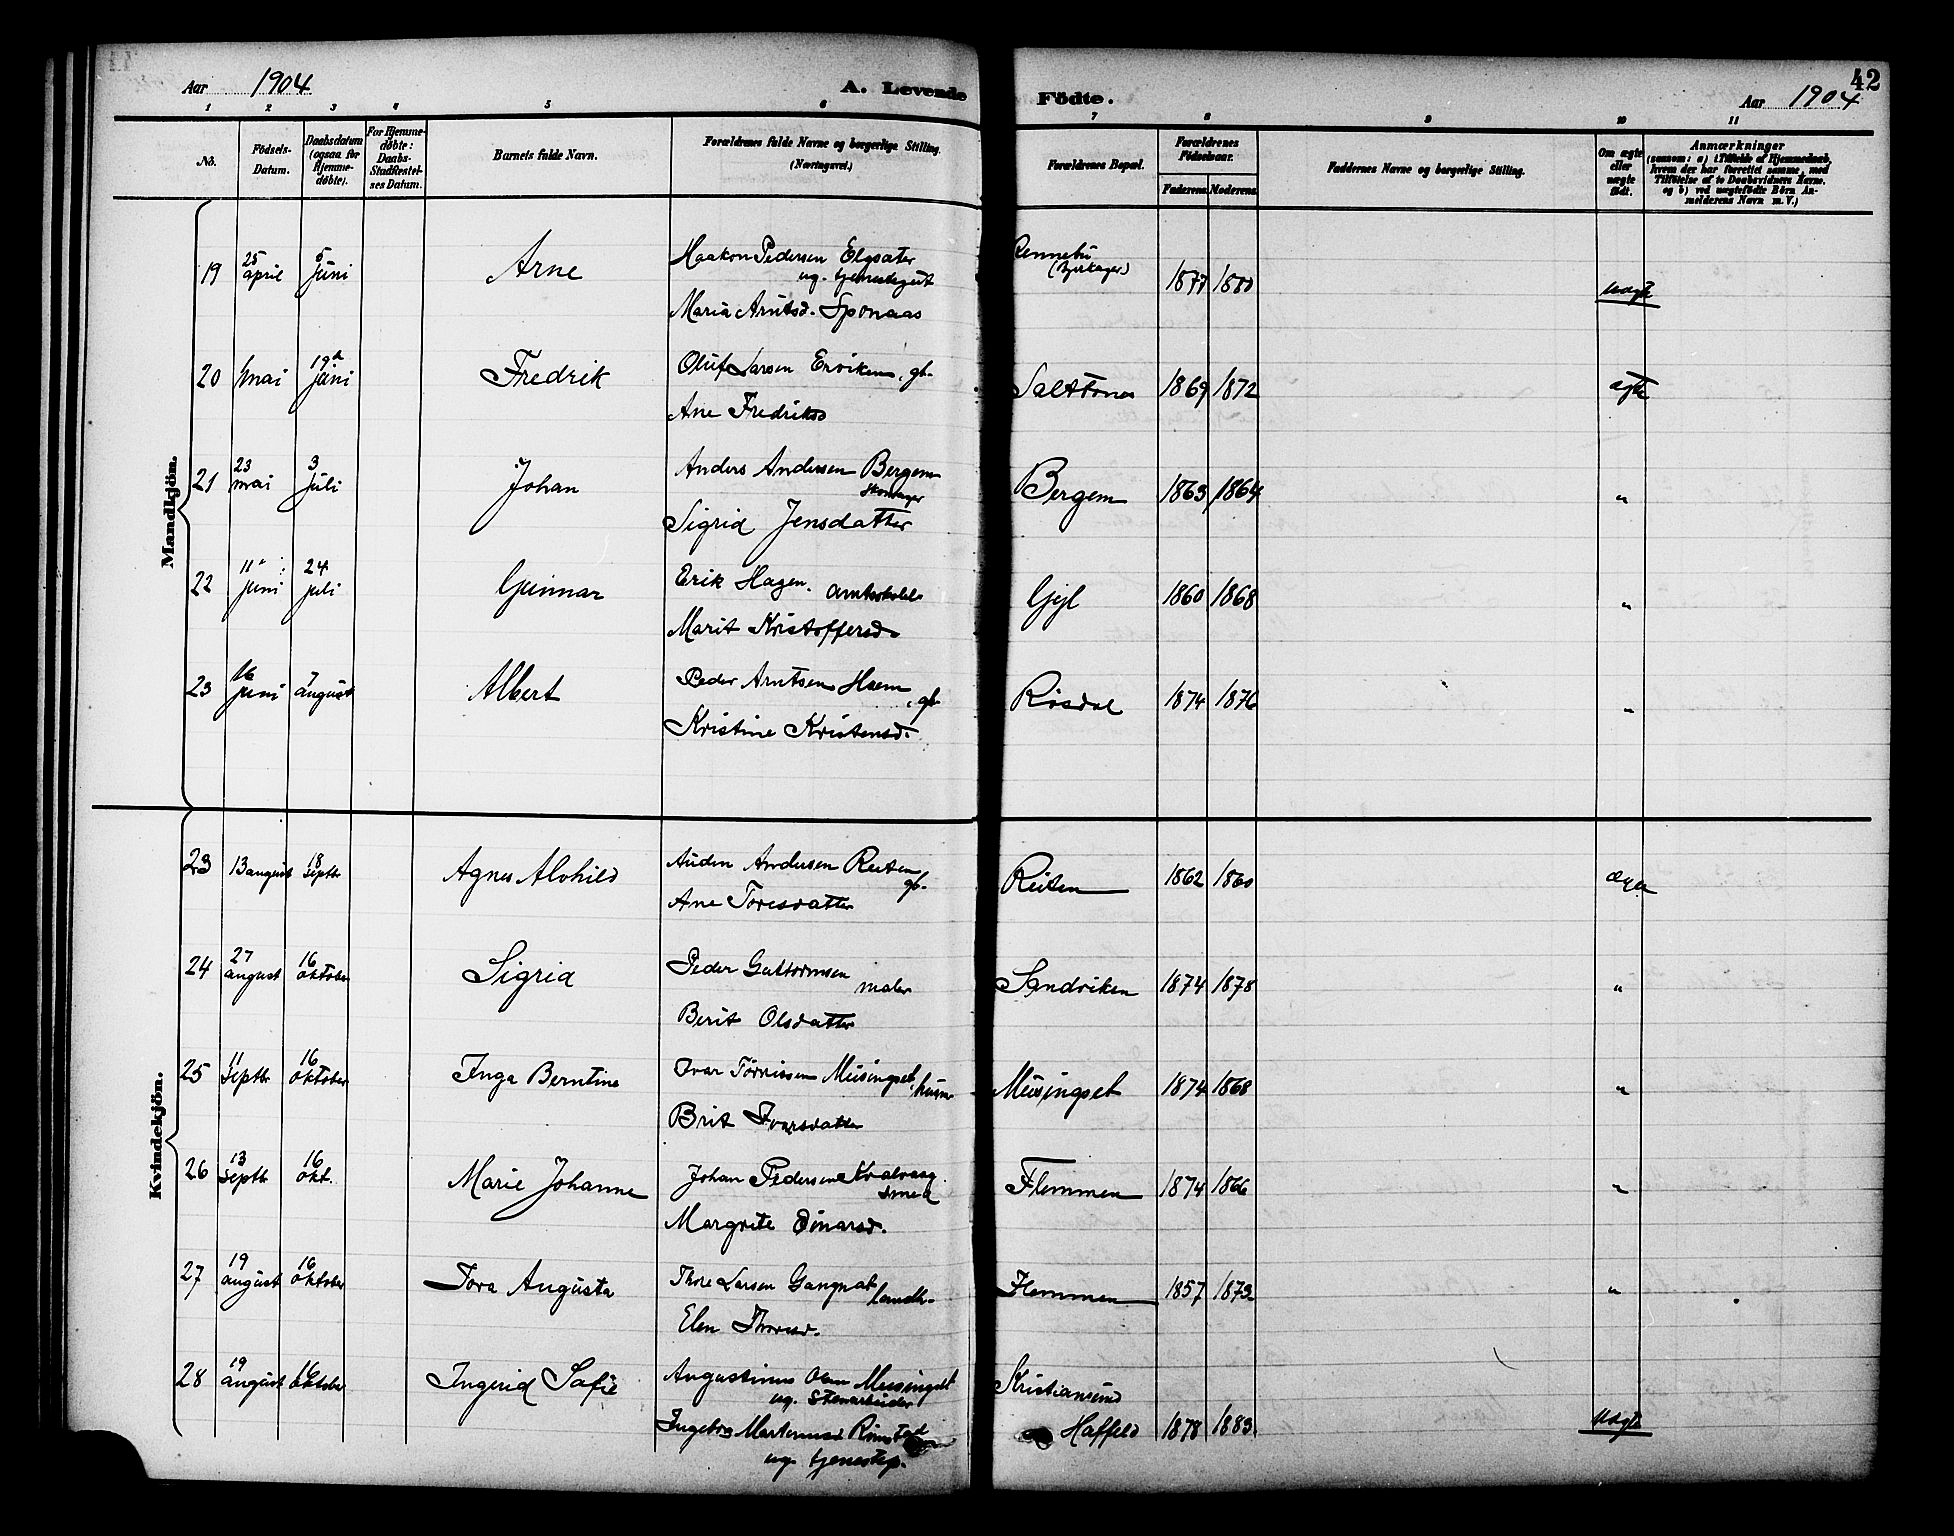 42
Aar 1904
A. Levende Födte.
Aar 1904
1 2 3 4 5 6 7 8 9 10 11
No.
Födsels-Datum.
Daabsdatum (ogsaa for Hjemme-døbte).
For Hjemme-døbte: Daabs-Stadfæstel-ses Datum.
Barnets fulde Navn.
Forældrenes fulde Navne og borgerlige Stilling. (Næringsvei.)
Forældrenes Bopæl.
Forældrenes Födselsaar.
Faderens. Moderens.
Faddernes Navne og borgerlige Stilling.
Om ægte eller uægte født.
Anmærkninger
(saasom: a) i Tilfælde af Hjemmedaab, hvem der har forrettet samme, med Tilføielse af to Daabsvidners Navne, og b) ved uægtefødte Börn Anmelderens Navn m. V.)
Mandkjön.
19 25 april 5 juni Arne Haakon Pedersen Elgsater Rennebu 1877 1880 uægte
ug. tjenestegut
Maria Arntsd. Sponaas
20 mai 19 juni Fredrik Oluf Larsen Erviken, gb. Saltrønes 1869 1872 ægte
Ane Fredriksd
21 23 mai 3 juli Johan Anders Andersen Bergem Bergem 1863 1864 "
Skomager
Sigrid Jensdatter
22 11 juni 24 juli Gunnar Erik Hagen. Gjøl 1860 1868 "
Marit Kristoffersd.
23 16 juni 7 august Albert Peder Arntsen Hæm, gb. Røsdal 1874 1876 "
Kristine Kristensd.
Kvindekjön.
23 13 august 18 septbr Agnes Alvhild Auden Andersen Reiten gb. Reiten 1862 1860 ægte
Ane Toresdatter
24 27 august 16 oktober Sigrid Peder Guttormsen maler Sandviken 1874 1878 "
Berit Olsdatter
25 11 septbr 16 oktober Inga Berntine Ivar Tørrissen Meisingset, husm Meisingset 1874 1868 "
Brit Ivarsdatter
26 13 septbr 16 okt. Marie Johanne Johan Pedersen Kvalvaag Flemmen 1874 1866 "
smed
Margrete Einarsd.
27 19 august 16 oktober Tora Augusta Thore Larsen Gangnat landh. Flemmen 1857 1873 "
Elen Thoresd.
28 19 august 16 oktober Ingerid Sofie Augustinus Olsen Meisingset Kristiansund
ug. Stenarbeider
Ingebor Martinusd Rimstad Haffeld 1878 1883 uægte
ug. tjenestep.